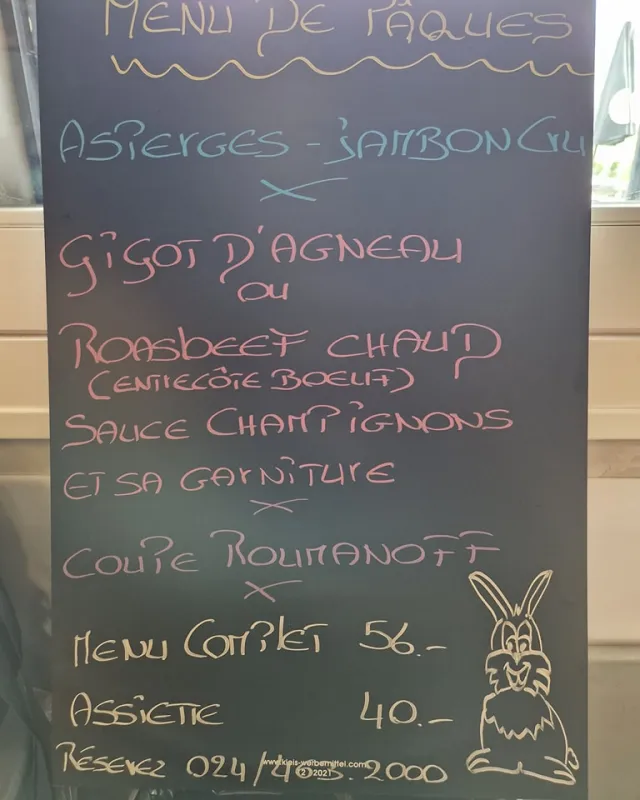 MENU DE PÂQUES
ASPERGES - JAMBON CRU
GIGOT D'AGNEAU
OU
ROASBEEF CHAUD
(ENTRECÔTE BOEUF)
SAUCE CHAMPIGNONS
ET SA GARNITURE
COUPE ROUMANOFF
MENU COMPLET 56.-
ASSIETTE 40.-
RÉSERVEZ 024/ 2000
www.kleis-werbemittel.com
2021